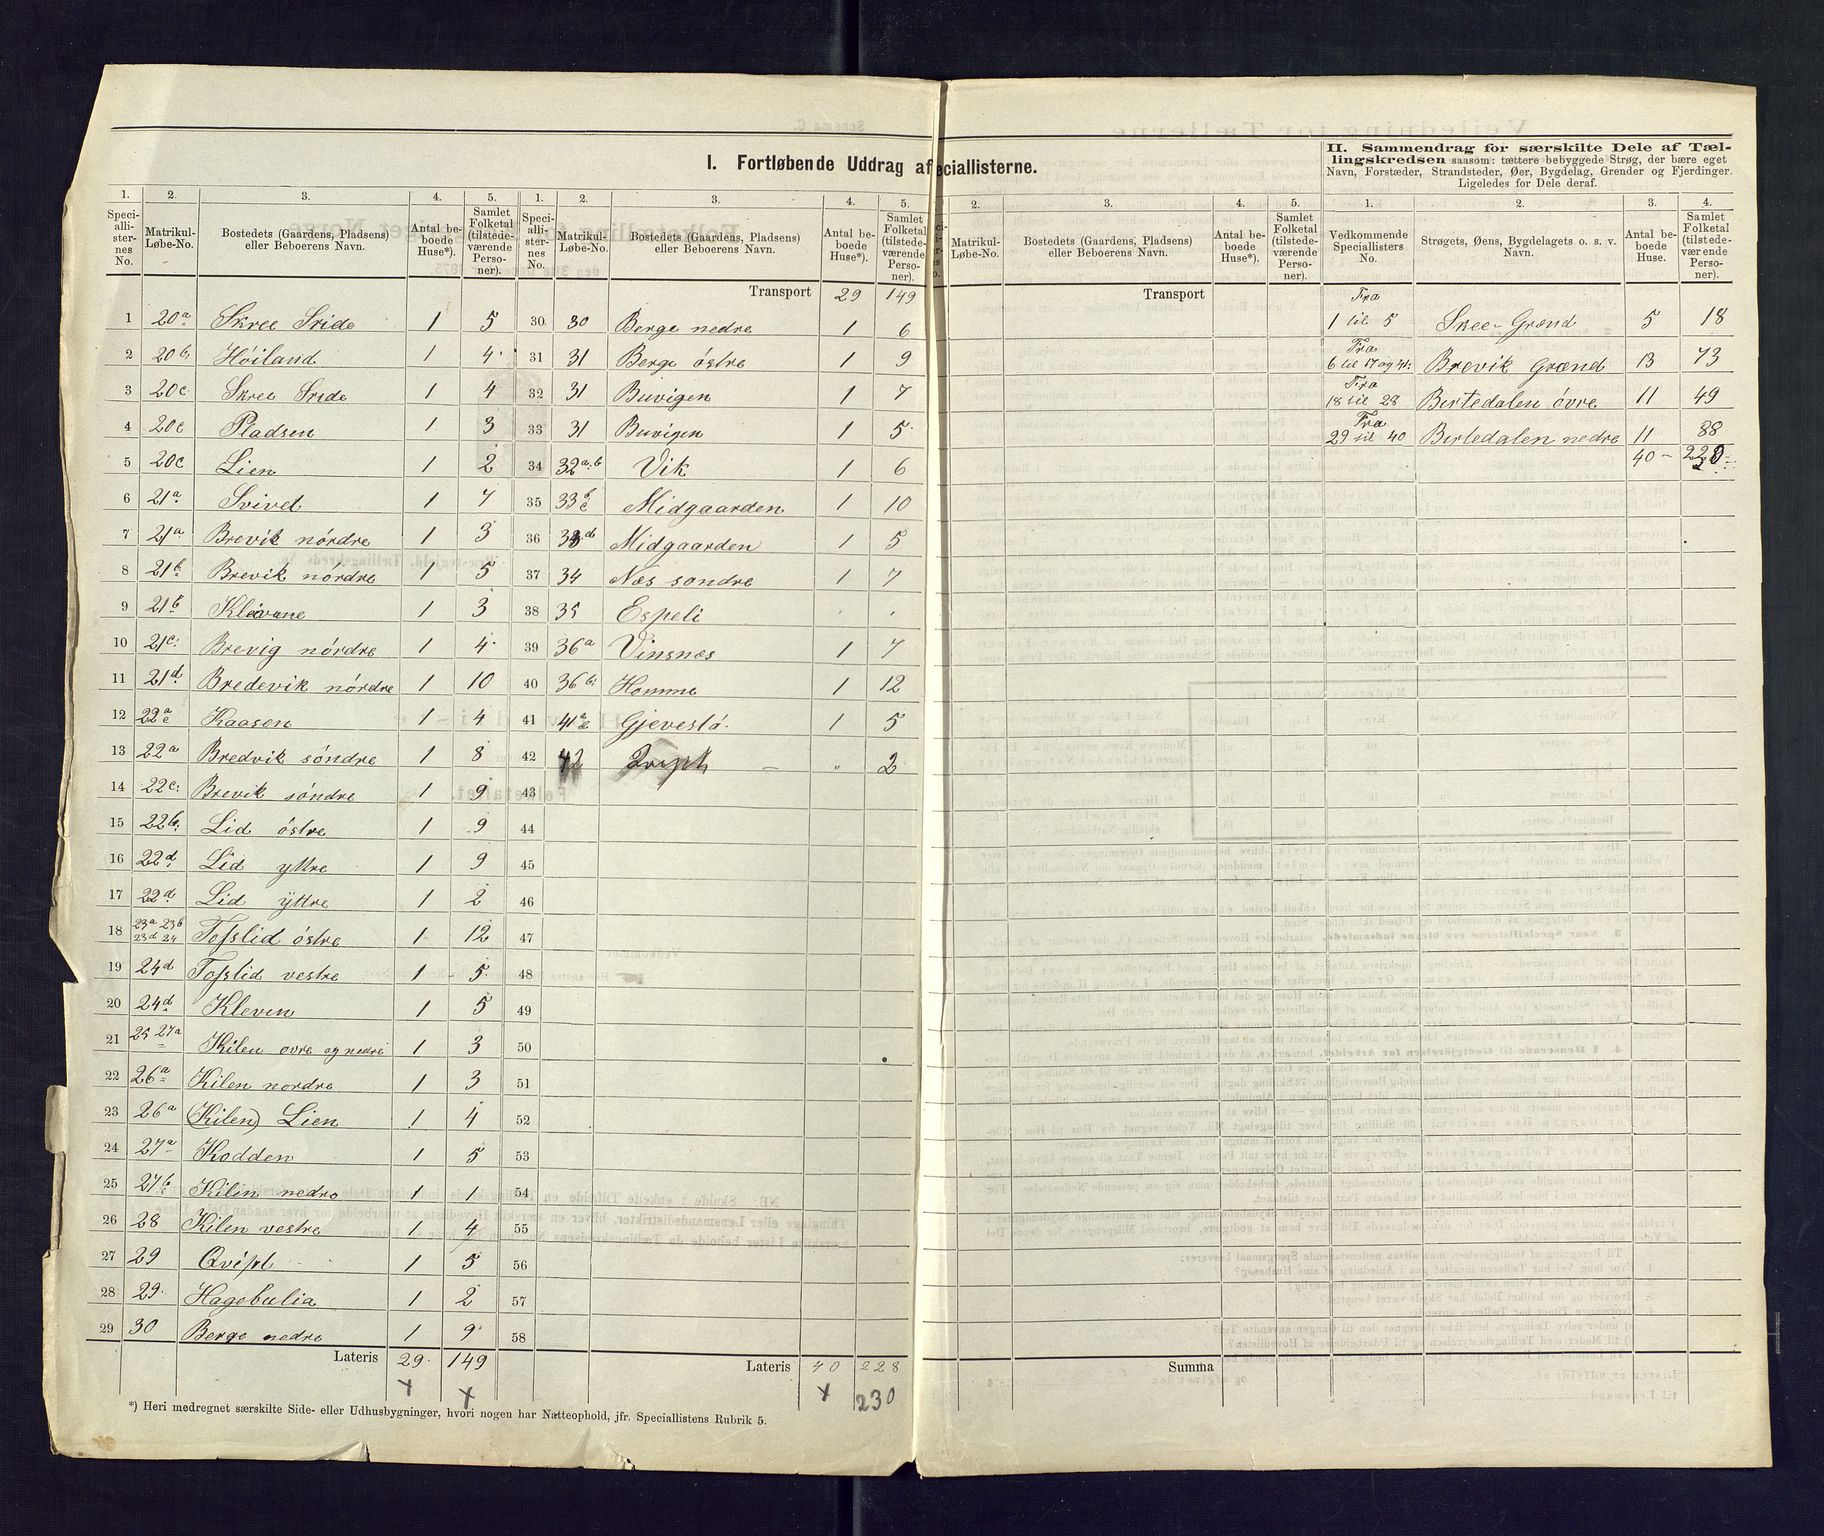 I. Fortløbende Uddrag af
eciallisterne.
II. Sammendrag for særskilte Dele af Tæl-
lingskredsen saasom: tættere bebyggede Strøg, der bære eget
Navn, Forstæder, Strandsteder, Øer, Bygdelag, Grender og Fjerdinger.
Ligeledes for Dele deraf.
1. 2. 3. 4. 5. 1. 2. 3. 4. 5. 2. 3. 4. 5. 1. 2. 3. 4.
Speci-
allis-
ternes
No.
Matrikul-
Løbe-No.
Bostedets (Gaardens, Pladsens)
eller Beboerens Navn.
Antal be-
boede
Huse*).
Samlet
Folketal
(tilstede-
værende
Perso-
ner).
1 20a Skree Sride 1 5
2 20b Höiland 1 4
3 20c Skree Sride 1 4
4 20c Pladsen 1 3
5 20c Lien 1 2
6 21a Svivet 1 7
7 21a Brevik nórdre 1 3
8 21b Brevik nórdre 1 5
9 21b Klevane 1 3
10 21c Brevig nórdre 1 4
11 21d Bredevik nórdre 1 10
12 22a e Kaasen 1 4
13 22a Bredvik sóndre 1 8
14 22c Brevik sóndre 1 9
15 22b Lid óstre 1 9
16 22d Lid yttre 1 9
17 22d Lid yttre 1 2
18 23a 23b 23d 24 Tofslid óstre 1 12
19 24d Tofslid vestre 1 5
20 24d Klevin 1 5
21 25 27a Kilen ovre og nedre 1 3
22 26a Kilen nordre 1 3
23 26a (Kilen) Lien 1 4
24 27a Kodden 1 5
25 27b Kilen nedre 1 1
26 28 Kilen vestre 1 4
27 29 Qvipt 1 5
28 29 Hagebulia 1 2
29 30 Berge nedre 1 9
Lateris 29 149
Speci-
allis-
ternes
No.
Matrikul-
Løbe-No.
Bostedets (Gaardens, Pladsens)
eller Beboerens Navn.
Antal be-
boede
Huse*).
Samlet
Folketal
(tilstede-
værende
Perso-
ner).
Transport 29 149
30 30 Berge nedre 1 6
31 31 Berge óstre 1 9
32 31 Buvigen 1 7
33 31 Buvigen 1 5
34 32a.b Vik 1 6
35 33b c Midgaarden 1 10
36 33d Midgaarden 1 5
37 34 Næs sondre 1 7
38 35 Espeli . .
39 36a Vinsnæs 1 7
40 36b Homme 1 12
41 41a Gjevestó 1 5
42 42 – „ 2
43
44
45
46
47
48
49
50
51
52
53
54
55
56
57
58
Lateris 40 228
230
*) Heri medregnet særskilte Side- eller Udhusbygninger, hvori nogen har Natteophold, jfr. Speciallistens Rubrik 5.
Matrikul-
Løbe-No.
Bostedets (Gaardens, Pladsens)
eller Beboerens Navn.
Antal be-
boede
Huse*).
Samlet
Folketal
(tilstede-
værende
Perso-
ner).
Transport
Summa
Vedkommende
Speciallisters
No.
Strøgets, Øens, Bygdelagets o. s. v.
Navn.
Antal
beboede
Huse.
Samlet
Folketal
(tilstede-
værende
Perso-
ner).
Fra
1 til 5 Skee-Grænd 5 18
Fra
6 til 17 og 41: Brevik Grænd 13 73
Fra
18 til 28 Birtedalen óvre 11 49
Fra
29 til 40 Birtedalen nedre 11 88
40 – 230